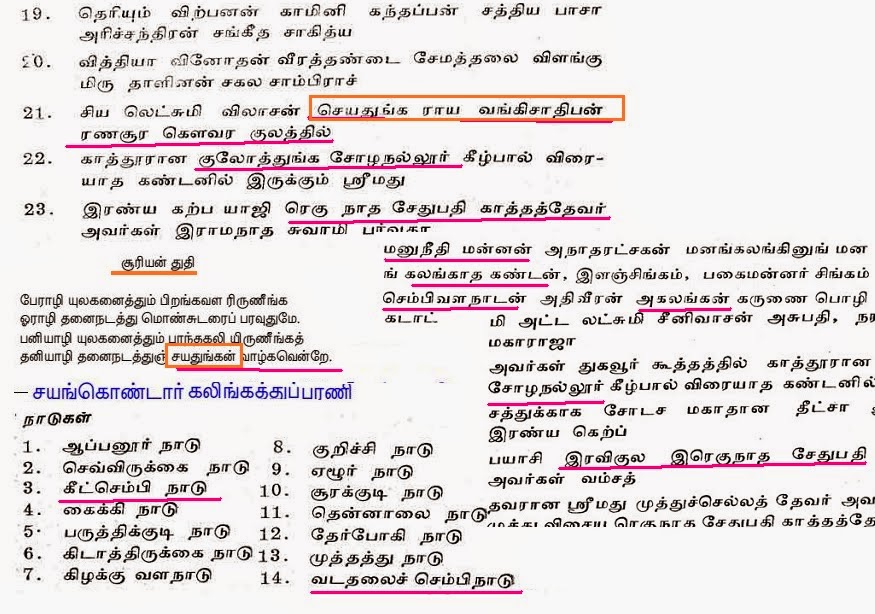 19. தெரியும் விற்பனன் காமினி கந்தப்பன் சத்திய பாசா
அரிச்சந்திரன் சங்கீத சாகித்ய
20. வித்தியா வினோதன் வீரத்தண்டை சேமத்தலை விளங்கு
மிரு தாளினன் சகல சாம்பிராச்
21. சிய லெட்சுமி விலாசன் செயதுங்க ராய வங்கிசாதிபன்
ரணசூர கௌவர குலத்தில்
22. காத்தூரான குலோத்துங்க சோழநல்லூர் கீழ்பால் விரை-
யாத கண்டனில் இருக்கும் ஸ்ரீமது
23. இரண்ய கற்ப யாஜி ரெகு நாத சேதுபதி காத்தத்தேவர்
அவர்கள் இராமநாத சுவாமி பர்வதா
சூரியன் துதி
பேராழி யுலகனைத்தும் பிறங்கவள ரிருணீங்க
ஓராழி தனைநடத்து மொண்சுடரைப் பரவுதுமே.
பனியாழி யுலகனைத்தும் பரந்தகலி யிருணீங்கத்
தனியாழி தனைநடத்துஞ் சயதுங்கன் வாழ்கவென்றே.
– சயங்கொண்டார் கலிங்கத்துப்பரணி
மனுநீதி மன்னன் அநாதரட்சகன் மனங்கலங்கினுங் மன
ங் கலங்காத கண்டன், இளஞ்சிங்கம், பகைமன்னர் சிங்கம்
செம்பிவளநாடன் அதிவீரன் அகலங்கன் கருணை பொழி
கடாட்
மி அட்ட லட்சுமி சீனிவாசன் அசுபதி, நர
மகாராஜா
அவர்கள் துகவூர் கூத்தத்தில் காத்தூரான
சோழநல்லூர் கீழ்பால் விரையாத கண்டனில்
சத்துக்காக சோடச மகாதான தீட்சா
இரண்ய கெற்ப்
பயாசி இரவிகுல இரெகுநாத சேதுபதி
அவர்கள் வம்சத்
தவரான ஸ்ரீமது முத்துச்செல்லத் தேவர் அவ
முத்து விசைய ரெகுநாத சேதுபதி காத்தத்தே
நாடுகள்
1. ஆப்பனூர் நாடு
2. செவ்விருக்கை நாடு
3. கீட்செம்பி நாடு
4. கைக்கி நாடு
5. பருத்திக்குடி நாடு
6. கிடாத்திருக்கை நாடு
7. கிழக்கு வளநாடு
8. குறிச்சி நாடு
9. ஏழூர் நாடு
10. சூரக்குடி நாடு
11. தென்னாலை நாடு
12. தேர்போகி நாடு
13. முத்தத்து நாடு
14. வடதலைச் செம்பிநாடு